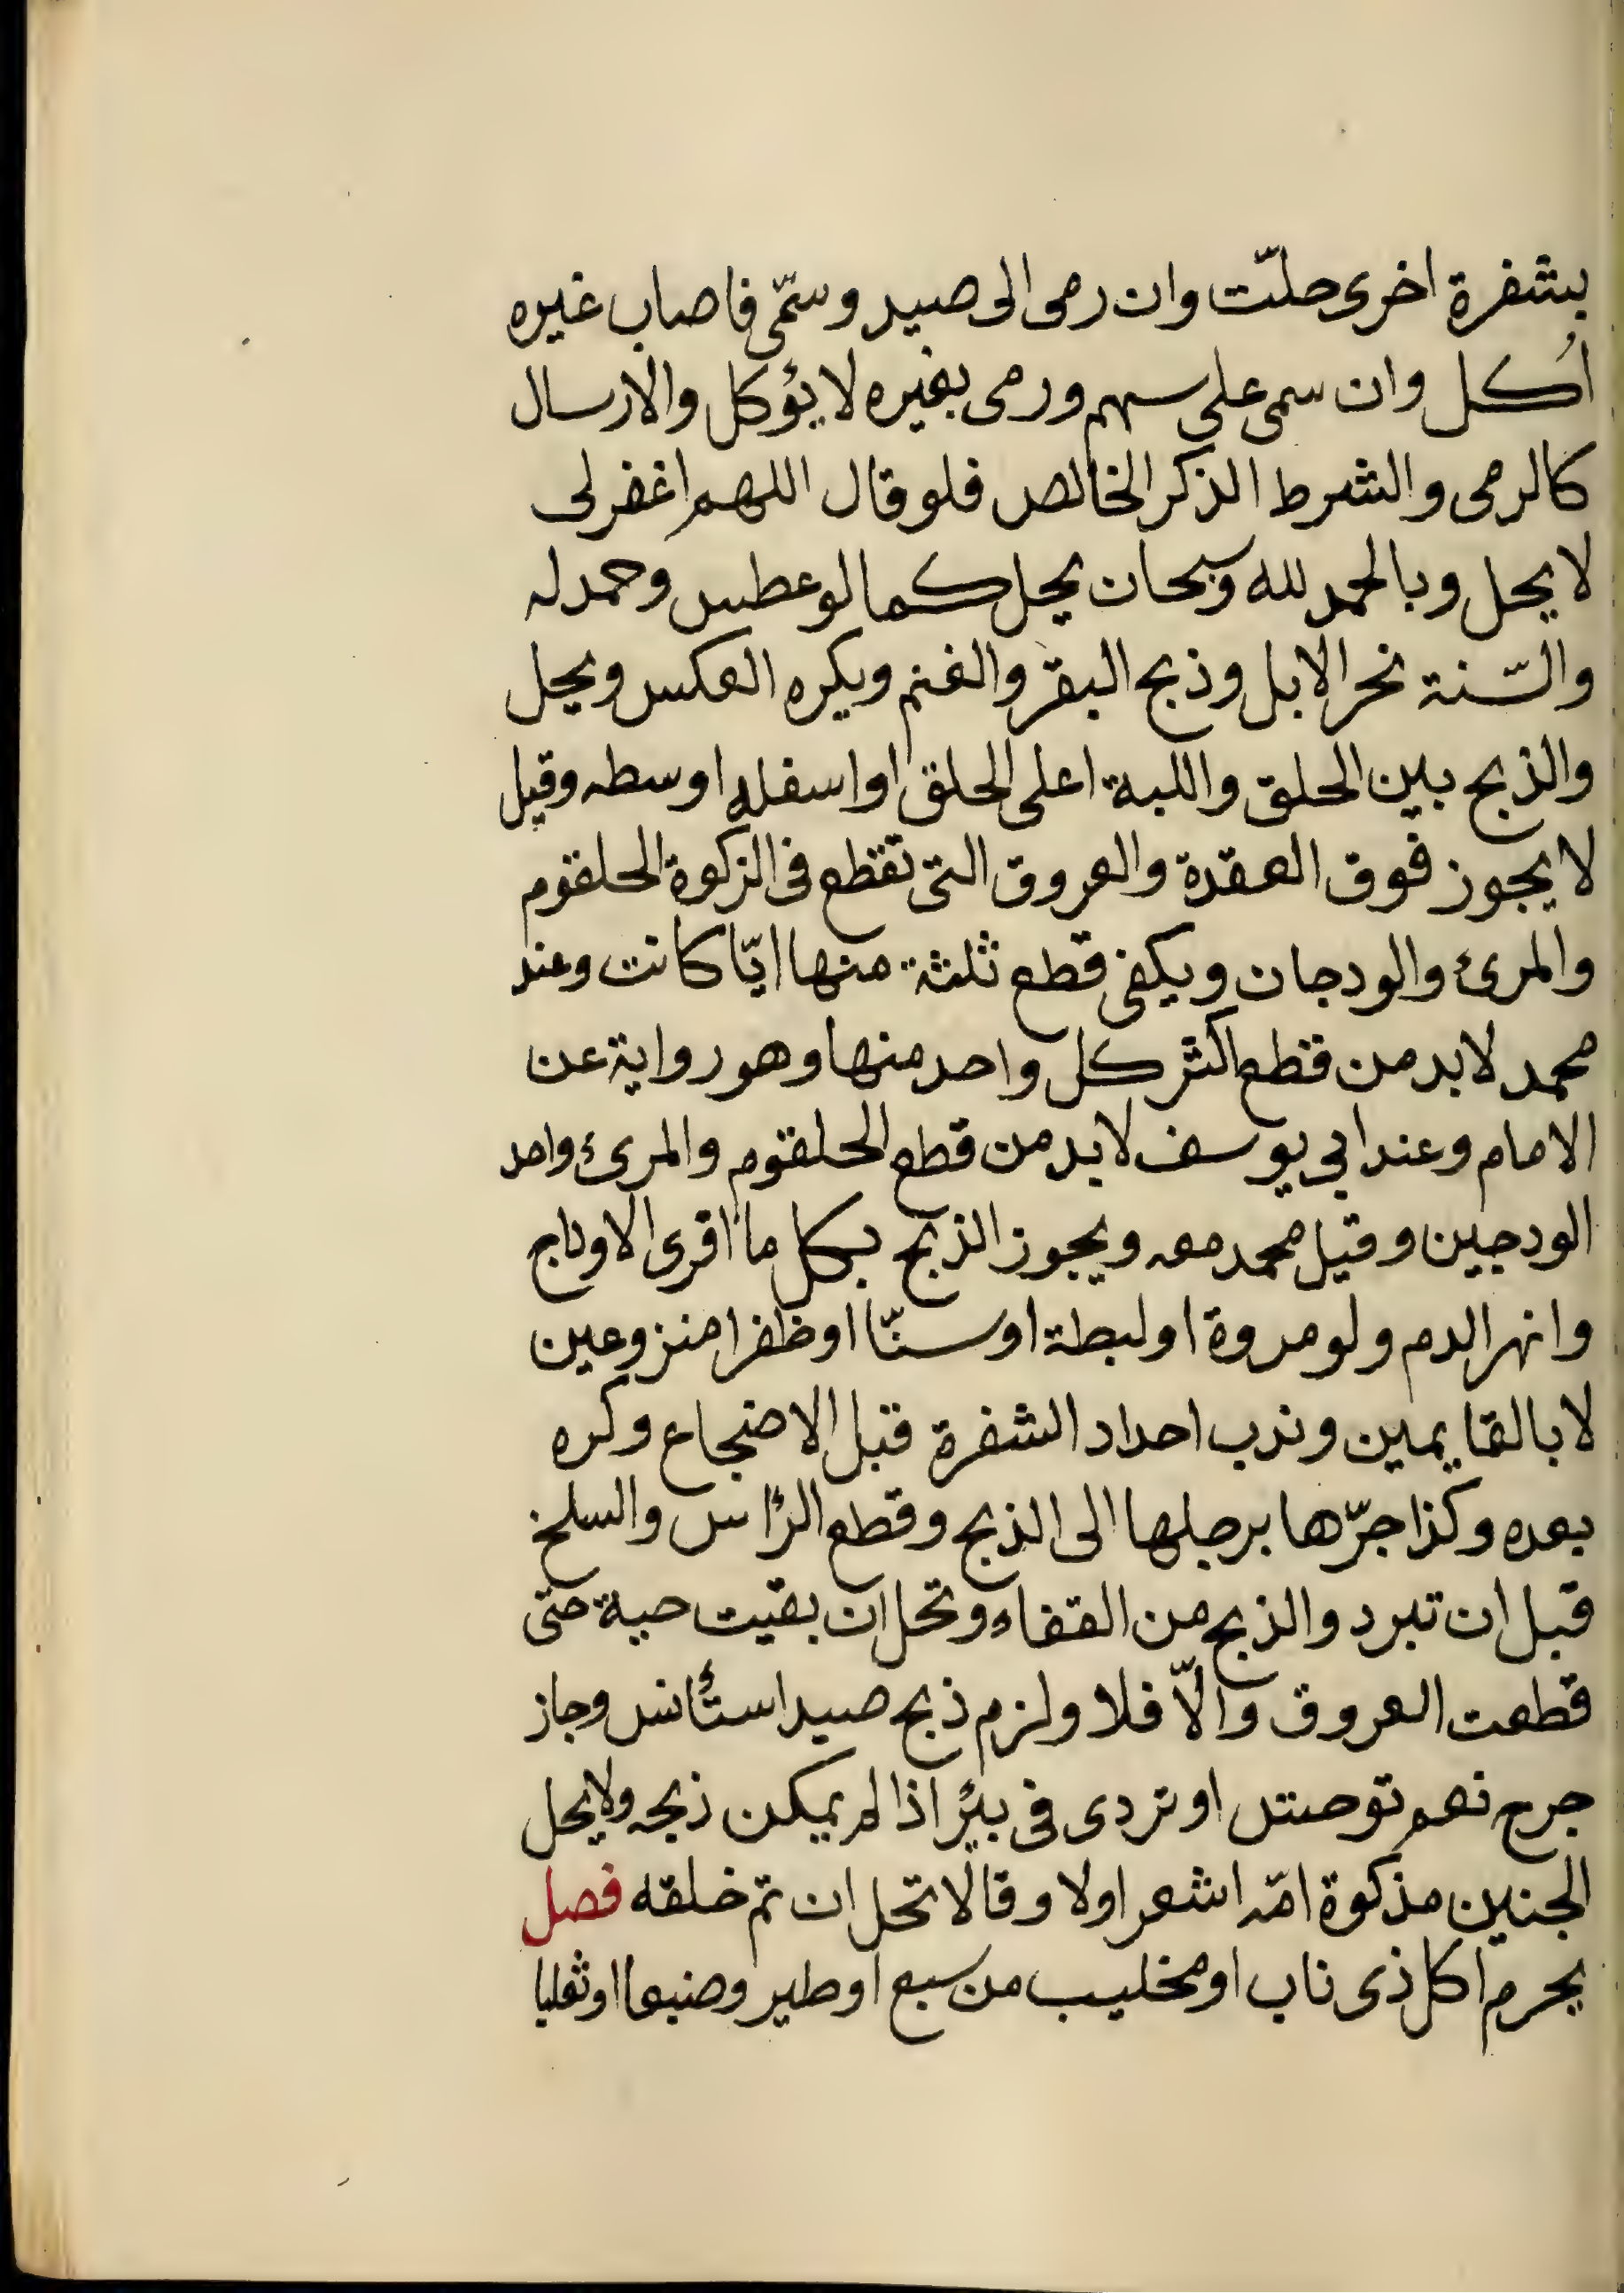 بشفرة اخرى حلّت وان رمى الى صيد وسمّى فاصاب غيره
اُكل وان سمى على سهم ورمى بغيره لا يؤكل والارسال
كالرمى والشرط الذكر الخالص فلو قال اللهم اغفر لى
لا يحل وبالحمد لله وسبحان يحل كما لو عطس وحمد له
والسّنة نحر الابل وذبح البقر والغنم ويكره العكس ويحل
والذبح بين الحلق واللبة اعلى الحلق او اسفله اوسطه وقيل
لا يجوز فوق العقدة والعروق التى تقطع فى الزكوة الحلقوم
والمرئ والودجان ويكفى قطع ثلثة منها ايّا كانت وعند
محمد لا بد من قطع اكثر كل واحد منها وهو رواية عن
الامام وعند ابي يوسف لا بد من قطع الحلقوم والمرئ واحد
الودجين وقيل محمد معه ويجوز الذبح بكل ما افرى الاوداج
وانهر الدم ولو مروة او ليطة او سنّا او ظفرا منزوعين
لا بالقايمين وندب احداد الشفرة قبل الاضجاع وكره
بعده وكذا جرّها برجلها الى الذبح وقطع الرأس والسلخ
قبل ان تبرد والذبح من القفاء وتحل ان بقيت حية حتى
قطعت العروق والّا فلا ولزم ذبح صيد استأنس وجاز
جرح نعم توحش او تردى فى بئر اذا لم يمكن ذبحه ولا يحل
الجنين مذكوة امّه اشعر اولا وقالا تحل ان تم خلقه فصل
يحرم اكل ذى ناب او مخليب من سبع او طير وضبعا او ثعلبا